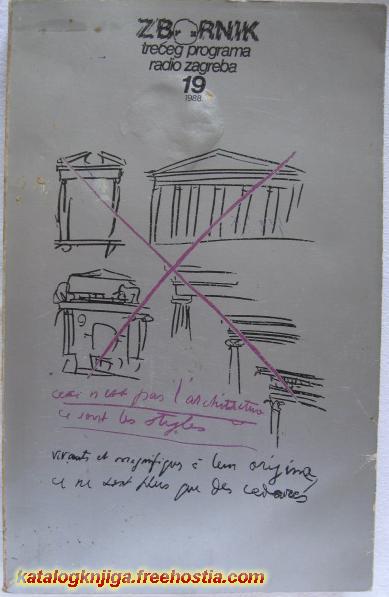 ZBORNIK
trećeg programa
radio zagreba
19
1988.
ceci n'est pas l'architecture
ce sont les styles
vivants et magnifiques à leur origine,
ce ne sont plus que des cadavres
katalogknjiga.freehostia.com